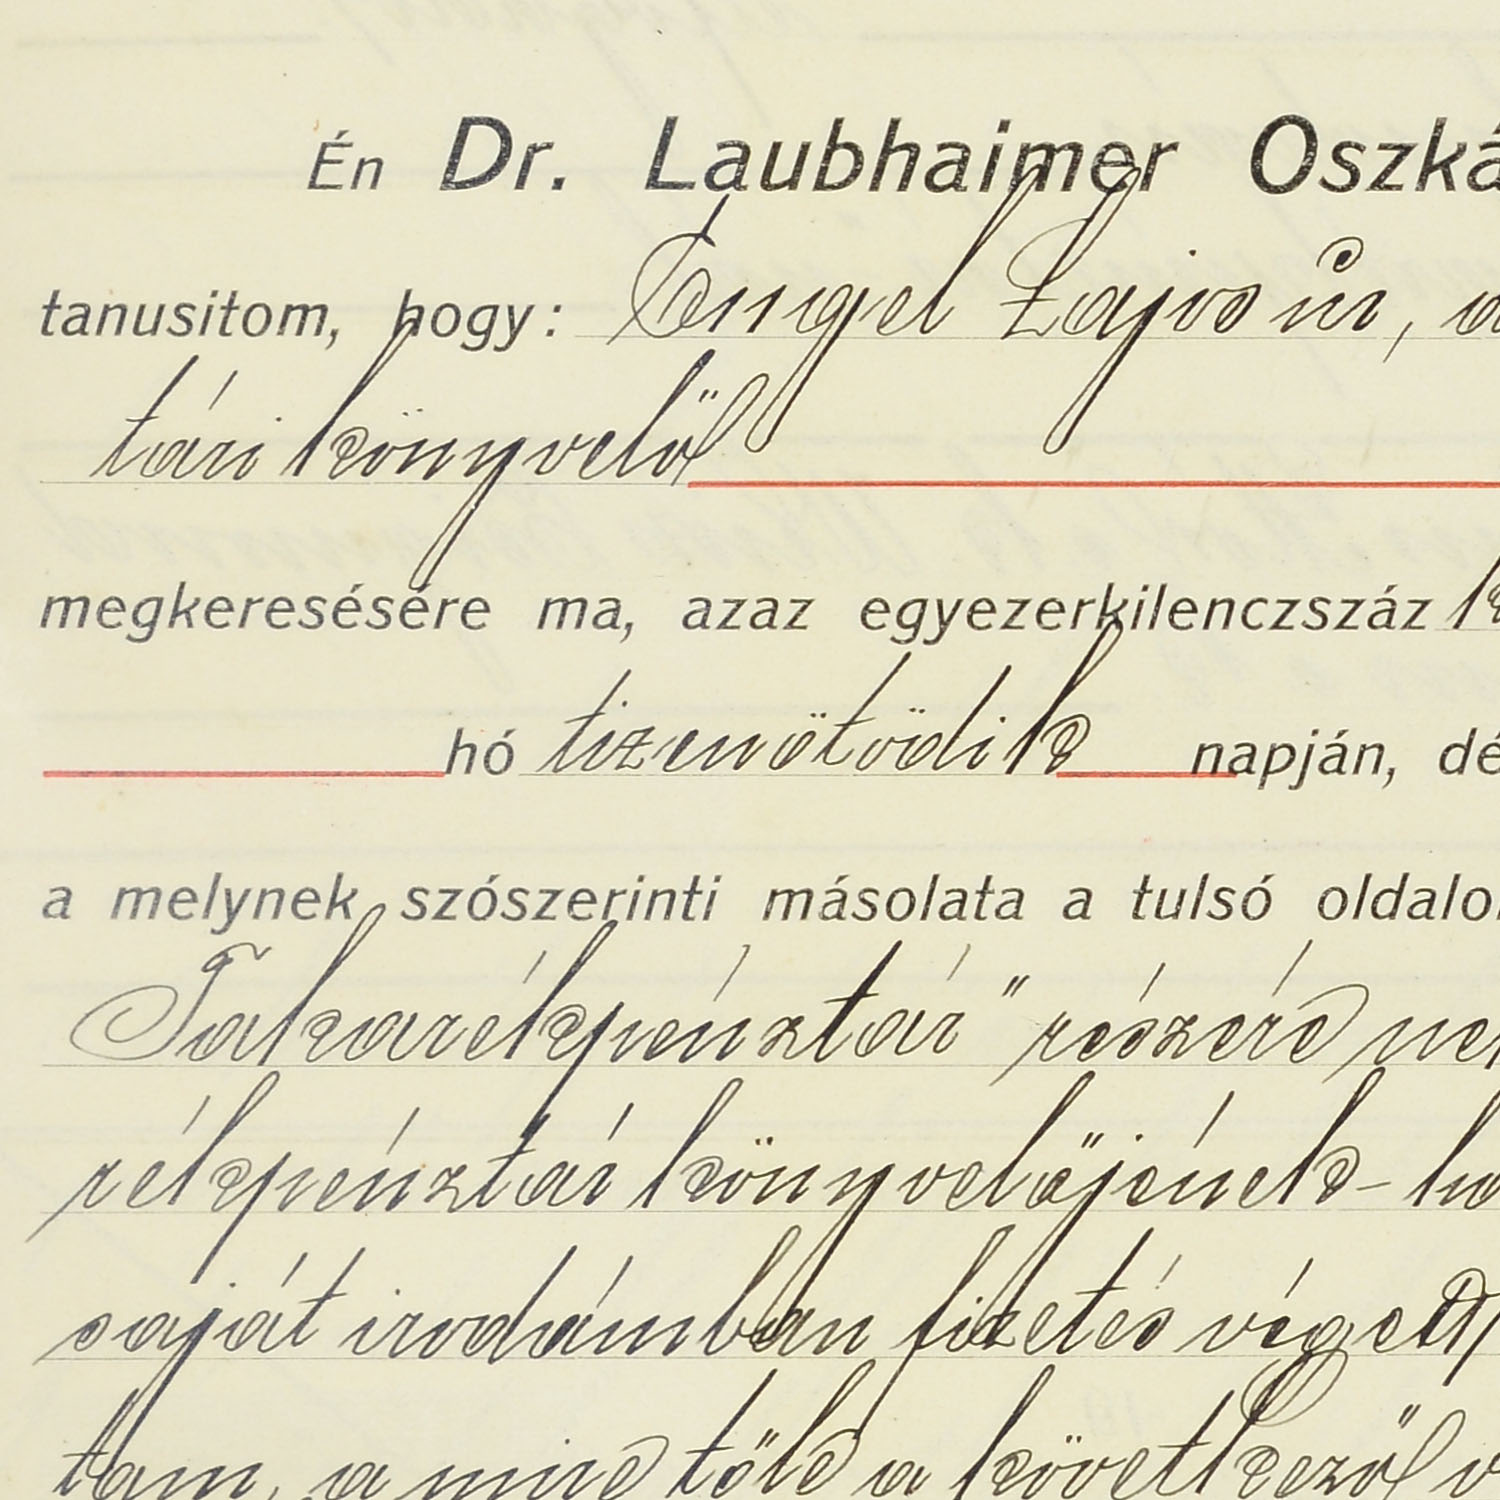 Én Dr. Laubhaimer Oszká
tanusitom, hogy: Engel Lajos úr, a
tári könyvelő
megkeresésére ma, azaz egyezerkilenczszáz
hó tizenötödik napján, dé
a melynek szószerinti másolata a tulsó oldalo
Takarékpénztár" részére ne
rékpénztár könyvelőjének-
saját irodámban fizetés végett
tam, a mire tőle a következő v